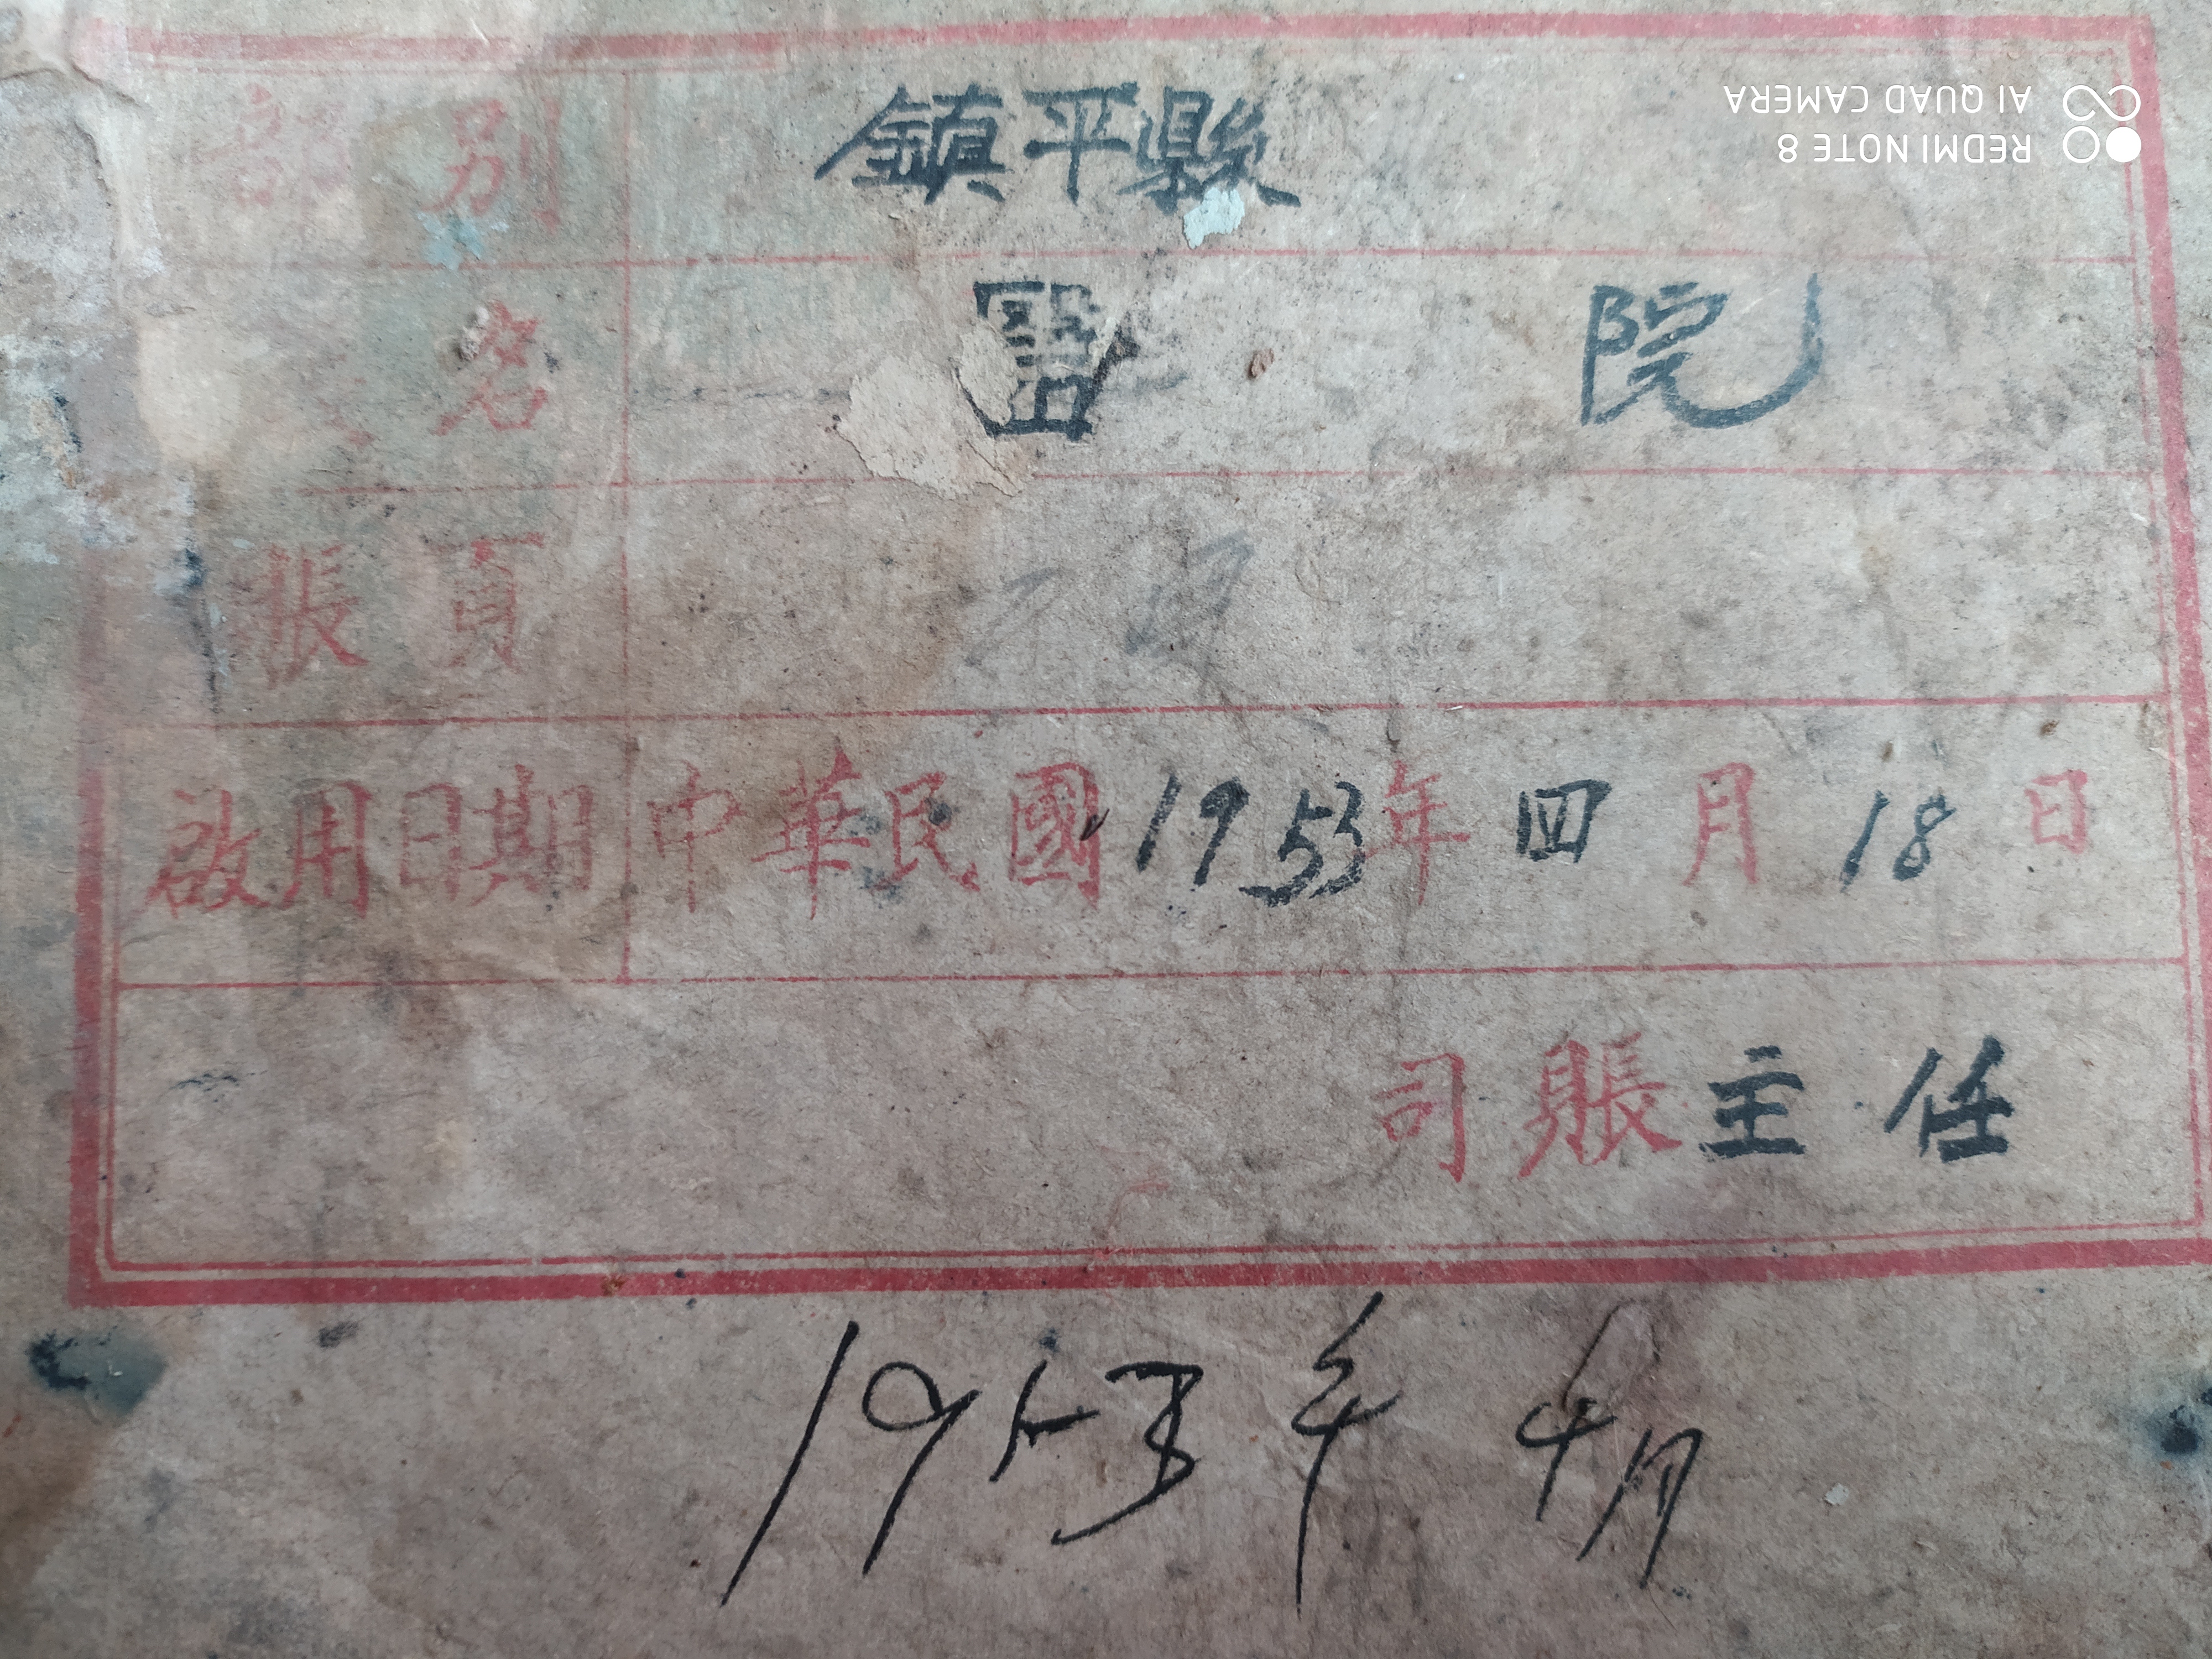 部 別 鎮平縣
名 醫 院
張 頁
啟用日期 中華民國1953年四月18日
司賬主任
1953年4月
REDMI NOTE 8
AI QUAD CAMERA